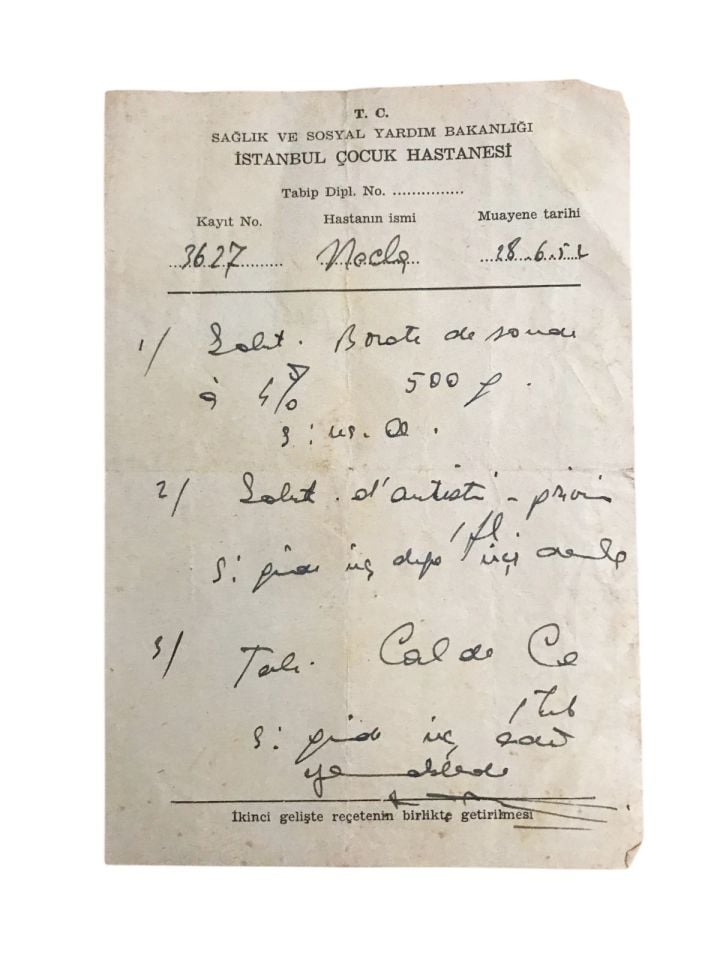 T. C.
SAĞLIK VE SOSYAL YARDIM BAKANLIĞI
İSTANBUL ÇOCUK HASTANESİ
Tabip Dipl. No. ...............
Kayıt No. Hastanın ismi Muayene tarihi
3627 Necla 28.6.52
1/ Solut. Borate de soude
à 4% 500 g.
S:
2/ Solut. d'antisti-privin
1 fl
S: günde üç
3/ Tab. Cal de Ce
1 tub
S: günde üç
İkinci gelişte reçetenin birlikte getirilmesi